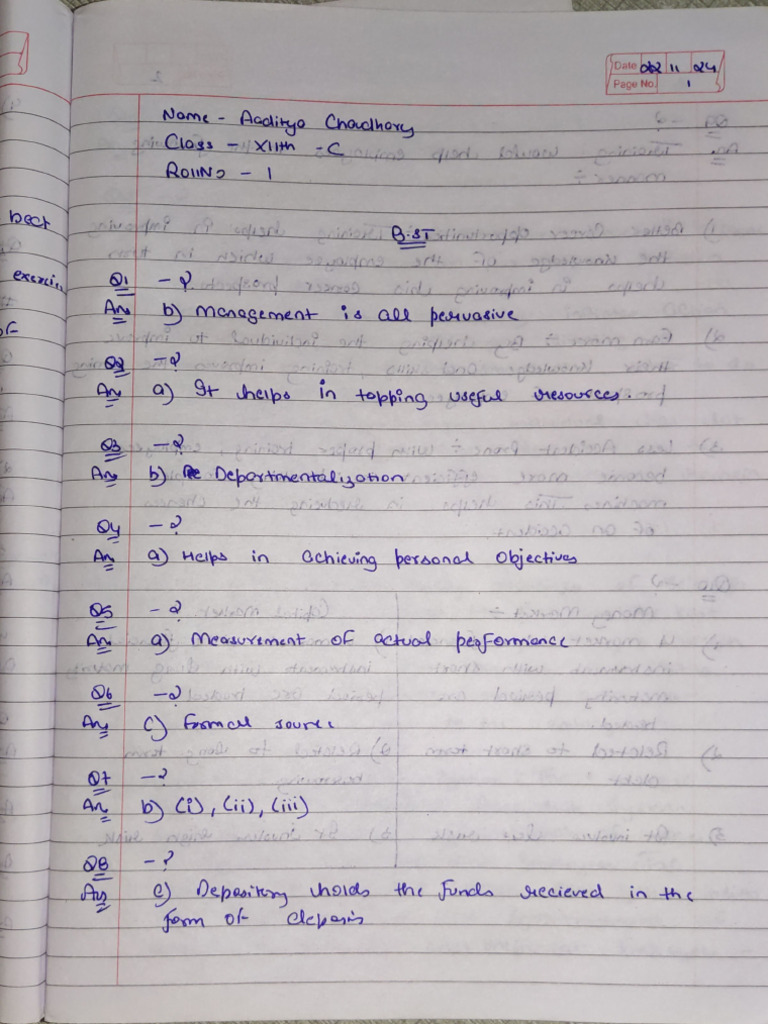 Date 02 11 24
Page No. 1
Name - Aaditya Choudhary
Class - XIIth - C
RollNo - 1
B.ST
bect
Q1 - ?
exercise
Ans b) Management is all pervasive
of
Q2 - ?
Ans a) It helps in topping useful resources.
Q3 - ?
Ans b) Departmentalization
Q4 - ?
Ans a) Helps in achieving personal objectives
Q5 - ?
Ans a) Measurement of actual performance
Q6 - ?
Ans c) Formal source
Q7 - ?
Ans b) (i), (ii), (iii)
Q8 - ?
Ans c) Depository holds the funds recieved in the
form of deposis